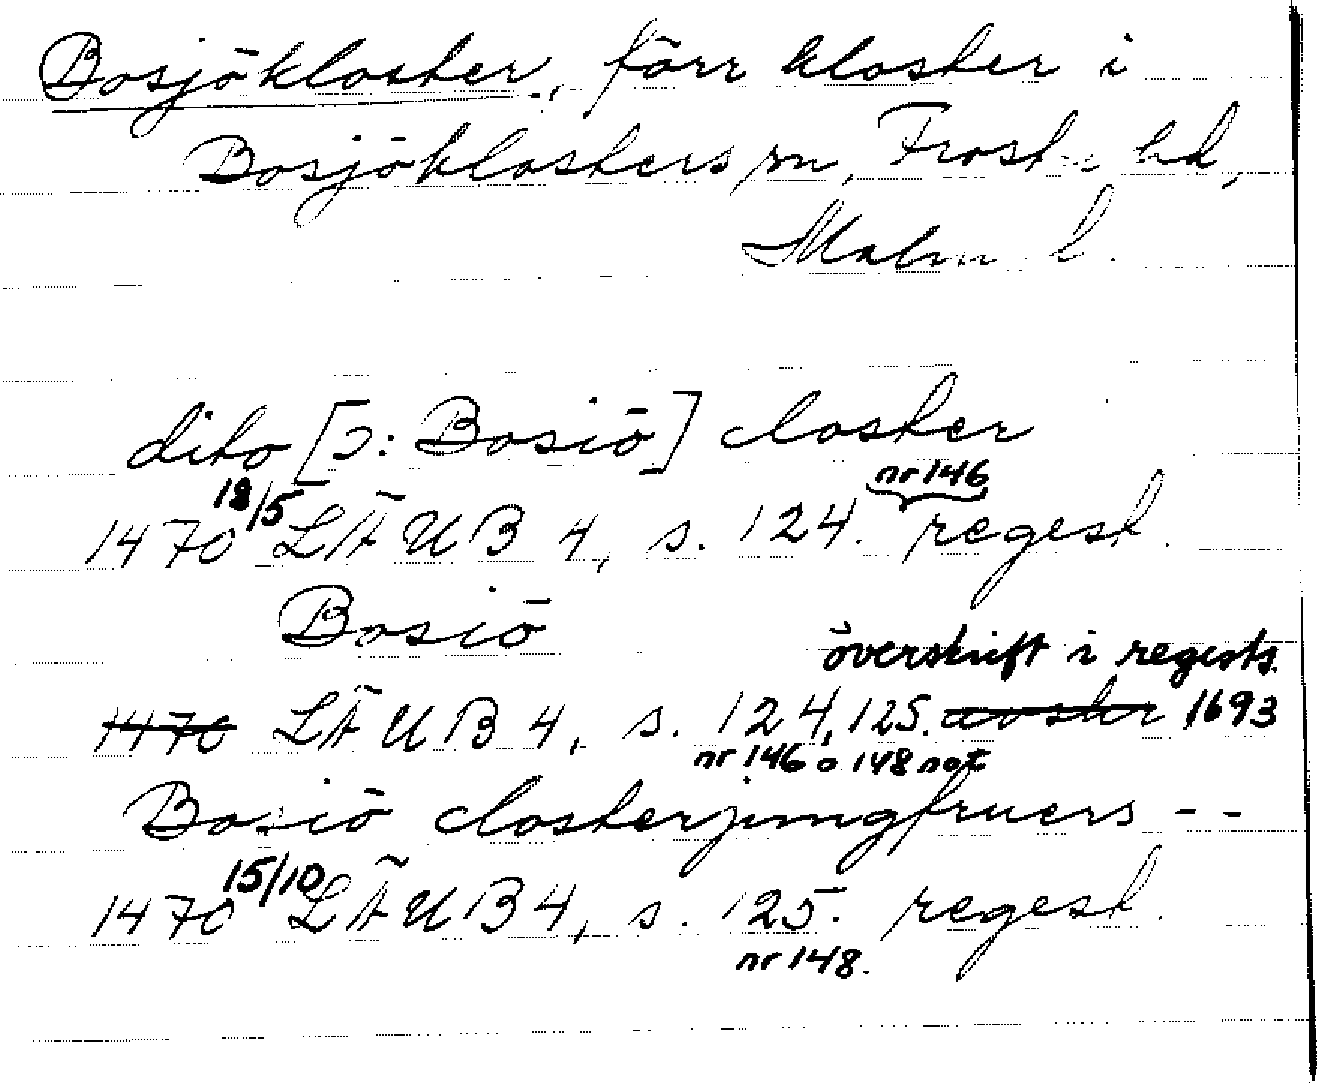 Bosjökloster, förr kloster i
Bosjöklosters sn, Frosta hd,
Malm. l.
dito [ɔ: Bosiö] closter
1470 18/5 LÄUB 4, s. 124. nr 146 regest.
Bosiö
överskrift i regests.
1470 LÄUB 4, s. 124, 125. 1693
nr 146 o 148 not
Bosiö closterjungfruers - -
1470 15/10 LÄUB 4, s. 125. regest.
nr 148.